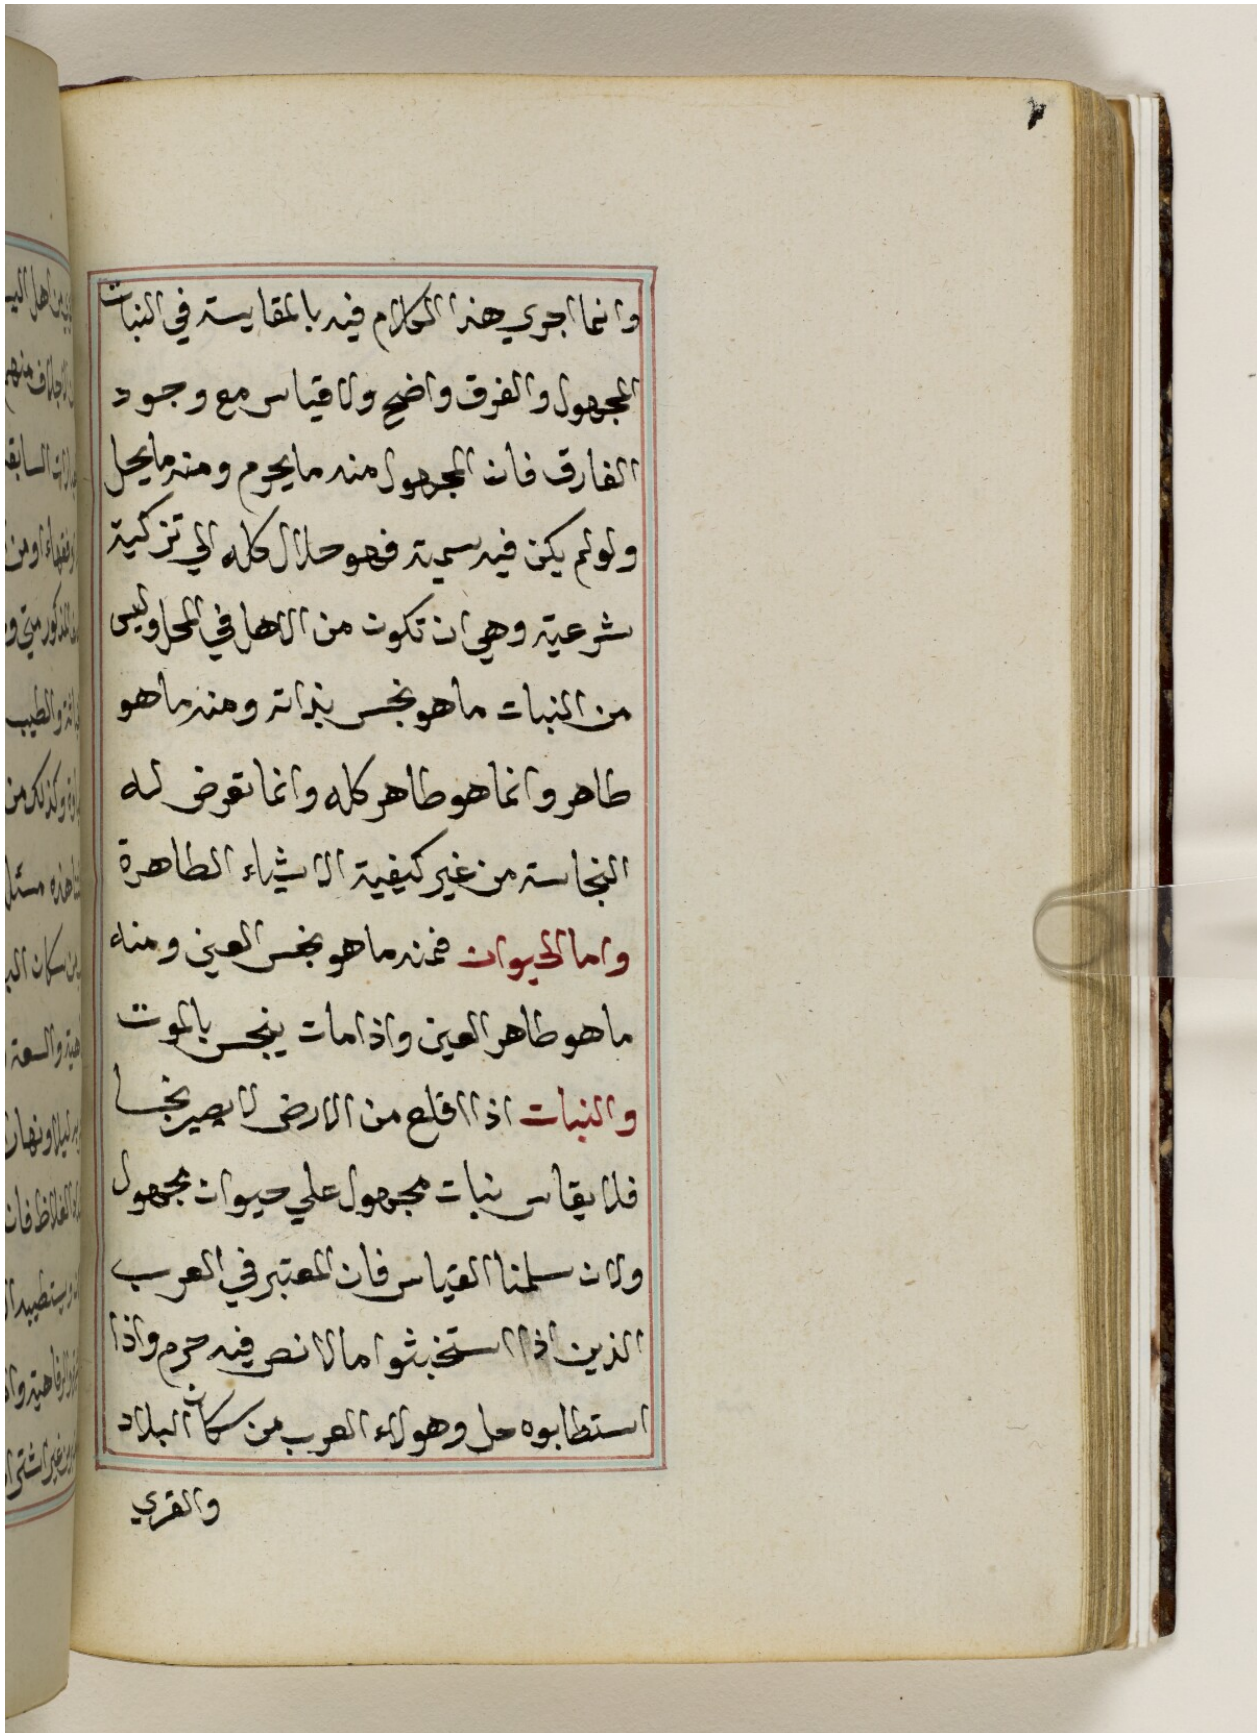 وانما اجري هذا الكلام فيه بالمقايسة في النبات
المجهول والفرق واضح ولا قياس مع وجود
الفارق فان المجهول منه ما يحرم ومنه ما يحل
ولو لم يكن فيه سمية فهو حلال كله الي تزكية
شرعية وهي ان تكون من الاهل في المحل وليس
من النبات ما هو نجس بذاته ومنه ما هو
طاهر وانما هو طاهر كله وانما تعرض له
النجاسة من غير كيفية الاشياء الطاهرة
واما الحيوان فمنه ما هو نجس العين ومنه
ما هو طاهر العين واذا مات ينجس بالموت
والنبات اذا اقلع من الارض لا يصير نجسا
فلا يقاس نبات مجهول علي حيوان مجهول
ولان سلمنا القياس فان المعتبر في العرب
الذين اذا استخبثوا اما لا نص فيه حرم واذا
استطابوه حل وهولاء العرب من سكان البلاد
والقري